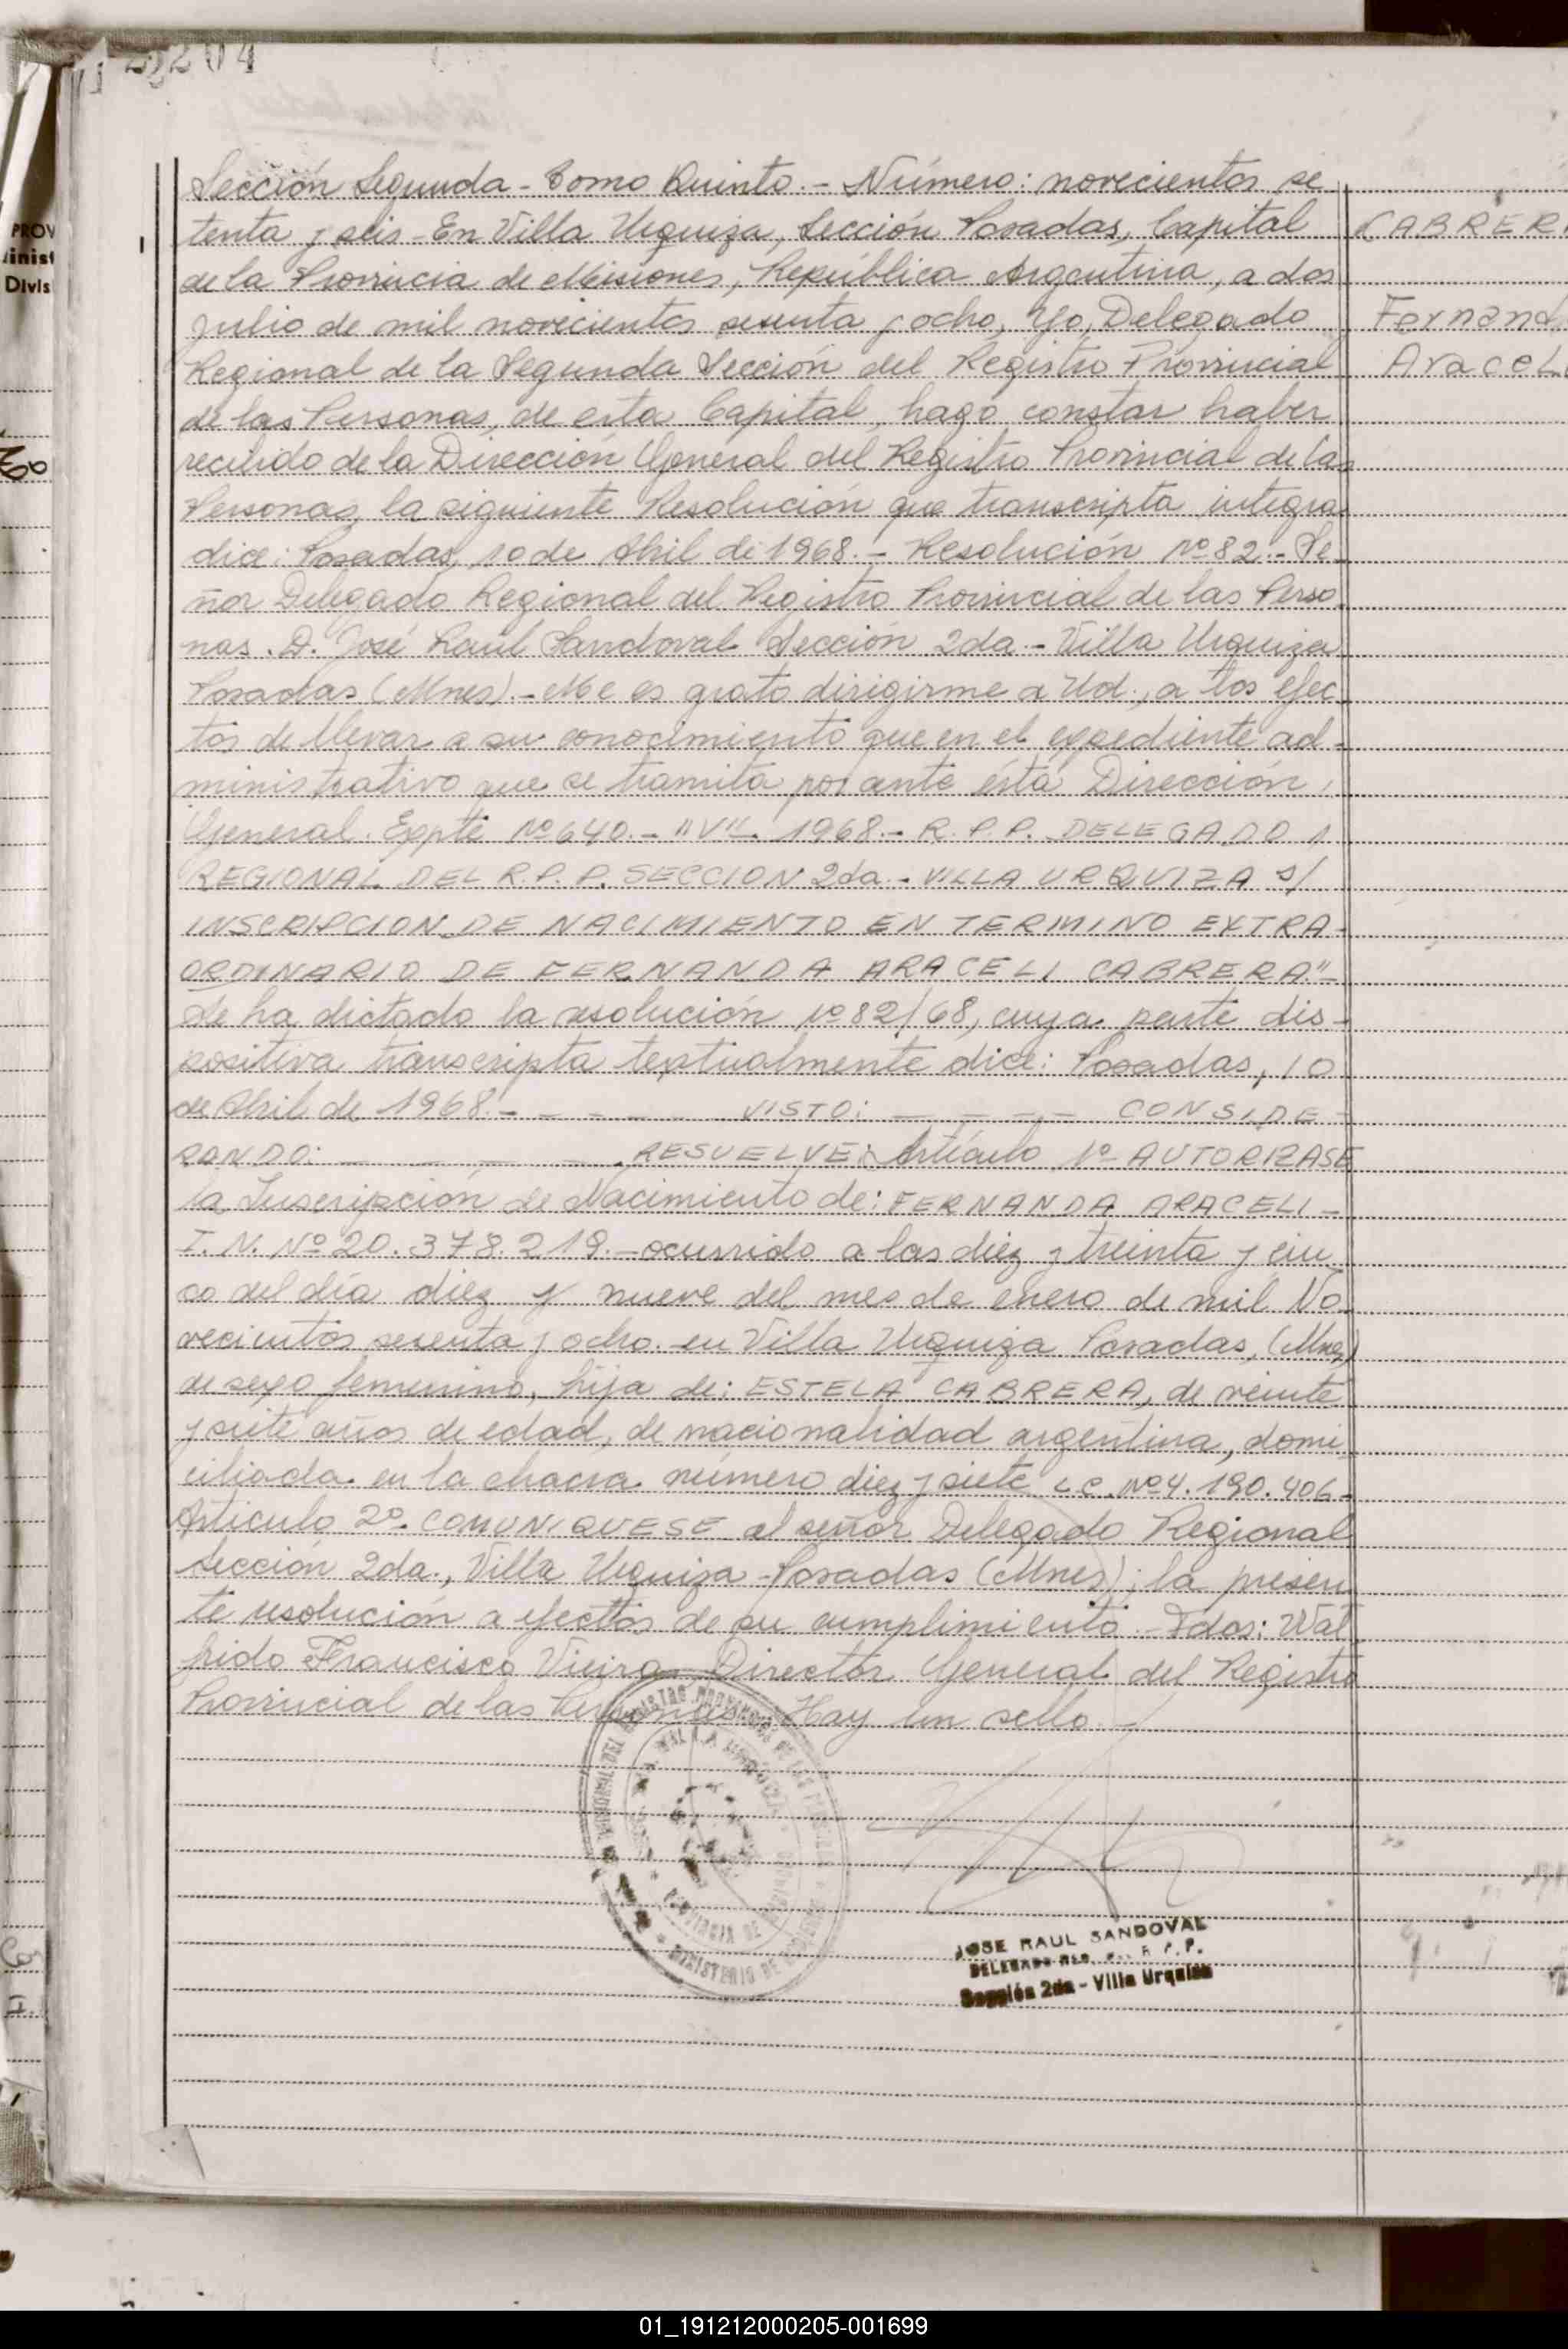 204
Sección Segunda - Tomo Quinto. - Número: novecientos se
tenta y seis - En Villa Urquiza, Sección Posadas, Capital
de la Provincia de Misiones, República Argentina, a dos
julio de mil novecientos sesenta y ocho, Yo, Delegado
Regional de la Segunda Sección del Registro Provincial
de las Personas, de esta Capital, hago constar haber
recibido de la Dirección General del Registro Provincial de las
Personas, la siguiente Resolución que transcripta integra
dice: Posadas, 10 de Abril de 1968. - Resolución Nº 82. - Se-
ñor Delegado Regional del Registro Provincial de las Perso
nas. D. José Raúl Sandoval Sección 2da. - Villa Urquiza
Posadas (Mnes). - Me es grato dirigirme a Ud., a los efec-
tos de llevar a su conocimiento que en el expediente ad-
ministrativo que se tramita por ante ésta Dirección
General. Expte Nº 640. - "V". 1968. - R. P. P. DELEGADO
REGIONAL DEL R. P. P. SECCION 2da - VILLA URQUIZA s/
INSCRIPCION DE NACIMIENTO EN TERMINO EXTRA-
ORDINARIO DE FERNANDA ARACELI CABRERA." -
Se ha dictado la resolución Nº 82/68, cuya parte dis-
positiva transcripta textualmente dice: Posadas, 10
de Abril de 1968. - - - - - VISTO: - - - - CONSIDE-
RANDO: - - - - RESUELVE: Artículo 1º AUTORIZASE
la Inscripción de Nacimiento de: FERNANDA ARACELI -
I. N. Nº 20. 378. 219. - ocurrido a las diez y treinta y cin
co del día diez y nueve del mes de enero de mil No
vecientos sesenta y ocho. en Villa Urquiza Posadas, (Mnes)
de sexo femenino, hija de: ESTELA CABRERA, de veinte
y siete años de edad, de nacionalidad argentina, domi
ciliada en la chacra número diez y siete L.C. Nº 4. 190. 406-
Articulo 2º. COMUNIQUESE al señor Delegado Regional
Sección 2da., Villa Urquiza - Posadas (Mnes); la presen
te resolución a efectos de su cumplimiento. - Fdos: Wal
frido Francisco Vieira Director General del Registro
Provincial de las Personas. Hay un sello. -
CABRER
Fernand
Araceli
MINISTERIO DE
JOSE RAUL SANDOVAL
DELEGADO REG. R. P. P.
Sección 2da - Villa Urquiza
PROV
inist
Divis
01_191212000205-001699